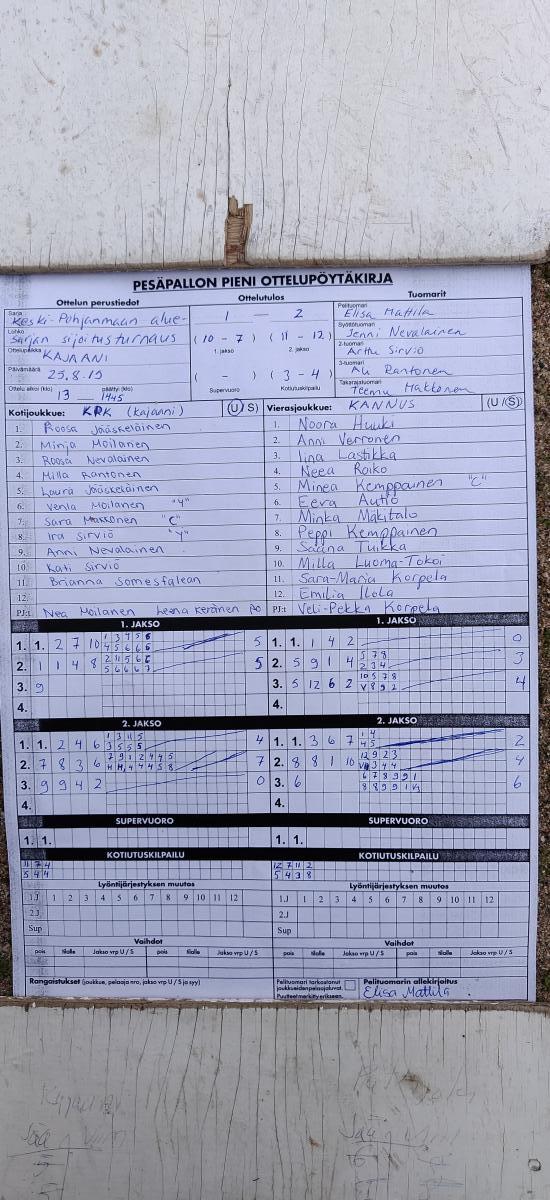 PESÄPALLON PIENI OTTELUPÖYTÄKIRJA
Ottelun perustiedot Ottelutulos Tuomarit
Sarja Keski-Pohjanmaan alue- 1 — 2 Pelituomari Elisa Mattila
Lohko sarjan sijoitusturnaus (10 - 7) (11 - 12) Syöttötuomari Jenni Nevalainen
Ottelupaikka KAJAANI 1. jakso 2. jakso 2-tuomari Arttu Sirviö
Päivämäärä 25.8.19 ( - ) (3 - 4) 3-tuomari Ali Rantonen
Ottelu alkoi (klo) 13 päättyi (klo) 1445 Supervuoro Kotiutuskilpailu Takarajatuomari Teemu Makkonen
Kotijoukkue: KPK (kajaani) (U/S) Vierasjoukkue: KANNUS (U/S)
1. Roosa Jääskeläinen 1. Noora Huuki
2. Minja Moilanen 2. Anni Verronen
3. Roosa Nevalainen 3. Iina Lastikka
4. Milla Rantonen 4. Neea Roiko
5. Laura Jääskeläinen 5. Minea Kemppainen "C"
6. Venla Moilanen "Y" 6. Eeva Autio
7. Sara Makkonen "C" 7. Minka Mäkitalo
8. Ira Sirviö "Y" 8. Peppi Kemppainen
9. Anni Nevalainen 9. Saana Tuikka
10. Kati Sirviö 10. Milla Luoma-Tokoi
11. Brianna Somesfalean 11. Sara-Maria Korpela
12. 12. Emilia Ilola
PJ:t Nea Moilanen Keränen PJ:t Veli-Pekka Korpela
1. JAKSO 1. JAKSO
1. 1. 2 7 10 1 3 4 5 6 5 1. 1. 1 4 2 0
4 5 6 6 6
2. 1 1 4 8 2 11 5 6 6 5 2. 5 9 1 4 5 7 8 3
5 6 6 6 7 2 3 4
3. 9 3. 5 12 6 2 10 5 7 8 4
V 8 9 2
4. 4.
2. JAKSO 2. JAKSO
1. 1. 2 4 6 1 3 11 5 4 1. 1. 3 6 7 1 4 2
3 5 5 5 4 5
2. 7 8 3 6 7 9 1 2 4 4 5 7 2. 8 8 1 10 12 9 2 3 4
4 4 4 5 8 3 4 4
3. 9 9 4 2 0 3. 6 6 7 8 9 9 1 6
8 8 9 9 1
4. 4.
SUPERVUORO SUPERVUORO
1. 1. 1. 1.
KOTIUTUSKILPAILU KOTIUTUSKILPAILU
11 7 4 12 7 11 2
5 4 4 5 4 3 8
Lyöntijärjestyksen muutos Lyöntijärjestyksen muutos
1.J 1 2 3 4 5 6 7 8 9 10 11 12 1.J 1 2 3 4 5 6 7 8 9 10 11 12
2.J 2.J
Sup Sup
Vaihdot Vaihdot
pois tilalle Jakso vrp U / S pois tilalle Jakso vrp U / S pois tilalle Jakso vrp U / S pois tilalle Jakso vrp U / S
Rangaistukset (joukkue, pelaaja nro, jakso vrp U / S ja syy) Pelituomari tarkastanut joukkueiden pelaajaluvat. Puutteet merkitty erikseen. Pelituomarin allekirjoitus
Elisa Mattila